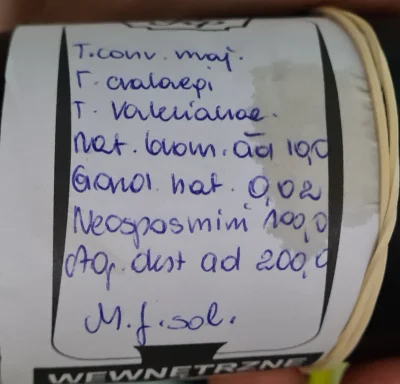 T. conv. maj.
T. crataegi
T. Valerianae
Nat. brom. āā 10,0
Gard. nat. 0,02
Neospasmini 100,0
Aq. dest ad 200,0
M. f. sol.
WEWNĘTRZNE